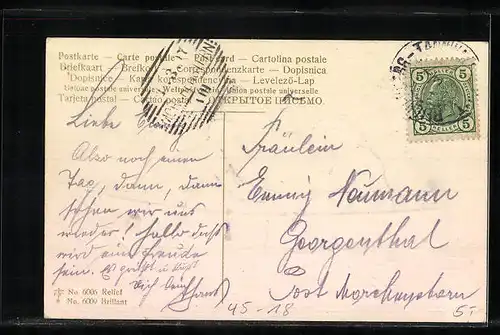 Postkarte — Carte postale — Postcard — Cartolina postale
Briefkaart — Brefkort — Correspondenzkarte — Dopisnica
Dopisnice — Karta korespondencyjna — Levelező-Lap
Unione postale universale. Weltpostverein. Union postale universelle
Tarjeta postal — Cartao postal — ОТКРЫТОЕ ПИСЬМО
5 5
5 HELLER 5
Liebe
Also noch einen
Tag, dann, dann
sehen wir uns
wieder!
wird eine Freude
sein.
Dich
Fräulein
Neumann
Georgenthal
Post Morchenstern
No. 6006 Relief
No. 6009 Brillant
45-18
5.-